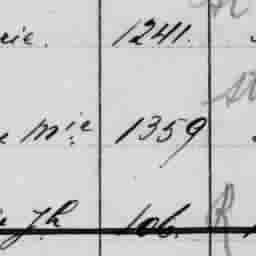 rie. 1241.
Mie 1359
Jh 106.